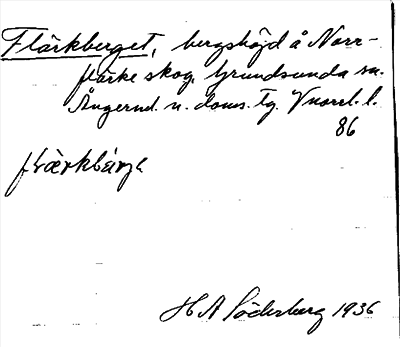 Flärkberget, bergshöjd å Norr-
flärke skog, Grundsunda sn.
Ångerml. n. doms. tg. Vnorrl. l.
86
flærkbærjə
H A Söderberg 1936